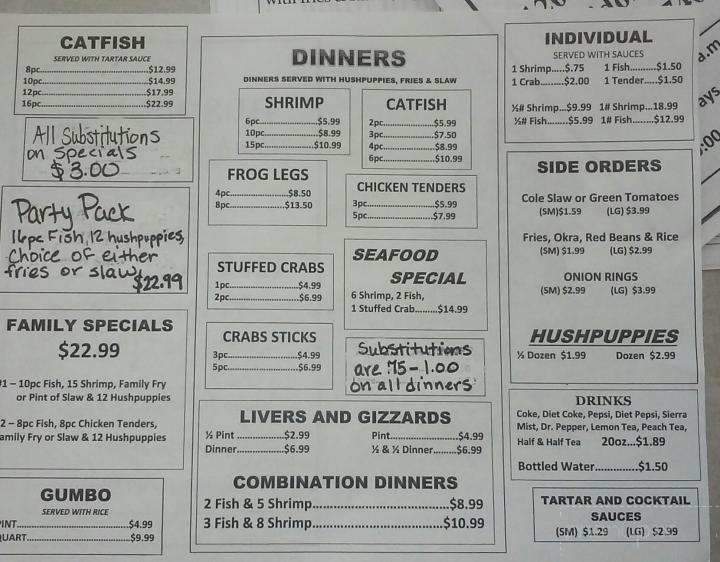 CATFISH
SERVED WITH TARTAR SAUCE
8pc...$12.99
10pc...$14.99
12pc...$17.99
16pc...$22.99
All Substitutions
on Specials
$3.00
Party Pack
16pc Fish, 12 hushpuppies,
Choice of either
fries or slaw
$22.99
FAMILY SPECIALS
$22.99
#1 – 10pc Fish, 15 Shrimp, Family Fry
or Pint of Slaw & 12 Hushpuppies
2 – 8pc Fish, 8pc Chicken Tenders,
amily Fry or Slaw & 12 Hushpuppies
GUMBO
SERVED WITH RICE
INT...$4.99
UART...$9.99
DINNERS
DINNERS SERVED WITH HUSHPUPPIES, FRIES & SLAW
SHRIMP
6pc...$5.99
10pc...$8.99
15pc...$10.99
CATFISH
2pc...$5.99
3pc...$7.50
4pc...$8.99
6pc...$10.99
FROG LEGS
4pc...$8.50
8pc...$13.50
CHICKEN TENDERS
3pc...$5.99
5pc...$7.99
STUFFED CRABS
1pc...$4.99
2pc...$6.99
SEAFOOD
SPECIAL
6 Shrimp, 2 Fish,
1 Stuffed Crab...$14.99
CRABS STICKS
3pc...$4.99
5pc...$6.99
Substitutions
are .75-1.00
on all dinners
LIVERS AND GIZZARDS
½ Pint...$2.99 Pint...$4.99
Dinner...$6.99 ½ & ½ Dinner...$6.99
COMBINATION DINNERS
2 Fish & 5 Shrimp...$8.99
3 Fish & 8 Shrimp...$10.99
INDIVIDUAL
SERVED WITH SAUCES
1 Shrimp.....$.75 1 Fish...$1.50
1 Crab...$2.00 1 Tender...$1.50
½# Shrimp...$9.99 1# Shrimp...18.99
½# Fish...$5.99 1# Fish...$12.99
SIDE ORDERS
Cole Slaw or Green Tomatoes
(SM)$1.59 (LG) $3.99
Fries, Okra, Red Beans & Rice
(SM) $1.99 (LG) $2.99
ONION RINGS
(SM) $2.99 (LG) $3.99
HUSHPUPPIES
½ Dozen $1.99 Dozen $2.99
DRINKS
Coke, Diet Coke, Pepsi, Diet Pepsi, Sierra
Mist, Dr. Pepper, Lemon Tea, Peach Tea,
Half & Half Tea 20oz...$1.89
Bottled Water...$1.50
TARTAR AND COCKTAIL
SAUCES
(SM) $1.29 (LG) $2.99